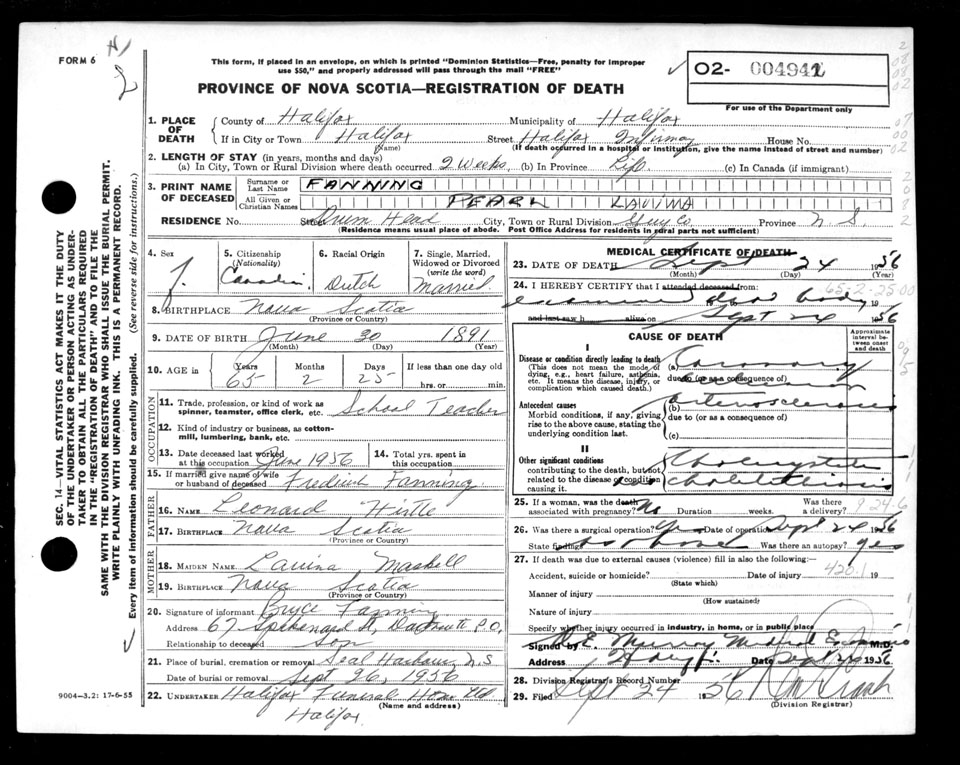 FORM 6
This form, if placed in an envelope, on which is printed "Dominion Statistics—Free, penalty for improper
use $50," and properly addressed will pass through the mail "FREE"
PROVINCE OF NOVA SCOTIA—REGISTRATION OF DEATH
02- 004942
For use of the Department only
SEC. 14 VITAL STATISTICS ACT MAKES IT THE DUTY
OF THE UNDERTAKER OR PERSON ACTING AS UNDER-
TAKER TO OBTAIN ALL THE PARTICULARS REQUIRED
IN THE "REGISTRATION OF DEATH" AND TO FILE THE
SAME WITH THE DIVISION REGISTRAR WHO SHALL ISSUE THE BURIAL PERMIT.
WRITE PLAINLY WITH UNFADING INK. THIS IS A PERMANENT RECORD.
Every item of information should be carefully supplied. (See reverse side for instructions.)
1. PLACE OF DEATH
County of Halifax Municipality of Halifax
If in City or Town Halifax Street Halifax Infirmary House No.
(Name) (If death occurred in a hospital or institution, give the name instead of street and number)
2. LENGTH OF STAY (in years, months and days)
(a) In City, Town or Rural Division where death occurred 2 weeks (b) In Province Life (c) In Canada (if immigrant)
3. PRINT NAME OF DECEASED
Surname or Last Name FANNING
All Given or Christian Names PEARL LAVINIA
RESIDENCE No. Street Drum Head City, Town or Rural Division Guy Co. Province N.S.
(Residence means usual place of abode. Post Office Address for residents in rural parts not sufficient)
4. Sex f.
5. Citizenship (Nationality) Canadian
6. Racial Origin Dutch
7. Single, Married, Widowed or Divorced (write the word) Married
8. BIRTHPLACE Nova Scotia
(Province or Country)
9. DATE OF BIRTH June 30 1891
(Month) (Day) (Year)
10. AGE Years 65 Months 2 Days 25 If less than one day old
hrs. or min.
OCCUPATION
11. Trade, profession, or kind of work as
spinner, teamster, office clerk, etc. School Teacher
12. Kind of industry or business, as cotton-
mill, lumbering, bank, etc.
13. Date deceased last worked
at this occupation June 1956
14. Total yrs. spent in
this occupation
15. If married give name of wife
or husband of deceased Fredrick Fanning
FATHER
16. NAME Leonard Hirtle
17. BIRTHPLACE Nova Scotia
(Province or Country)
MOTHER
18. MAIDEN NAME Lavina Maskell
19. BIRTHPLACE Nova Scotia
(Province or Country)
20. Signature of informant Bryce Fanning
Address 67 St, Dartmouth P.O.
Relationship to deceased Son
21. Place of burial, cremation or removal Seal Harbour N.S
Date of burial or removal Sept 26, 1956
22. UNDERTAKER Halifax Funeral Home Ltd
(Name and address)
Halifax
9004—3.2: 17-6-55
MEDICAL CERTIFICATE OF DEATH
23. DATE OF DEATH Sept 24 1956
(Month) (Day) (Year)
24. I HEREBY CERTIFY that I attended deceased from:
65-2-25 00
examined dead body 19
and last saw h alive on Sept 24 1956
CAUSE OF DEATH
Approximate interval between onset and death
I
Disease or condition directly leading to death
(This does not mean the mode of
dying, e.g., heart failure, asthenia,
etc. It means the disease, injury, or
complication which caused death.)
(a) Coronary
due to (or as a consequence of)
Antecedent causes
Morbid conditions, if any, giving
rise to the above cause, stating the
underlying condition last.
(b) arteriosclerosis
due to (or as a consequence of)
(c)
II
Other significant conditions
contributing to the death, but not
related to the disease or condition
causing it.
Cholecystitis
Cholelithiasis
25. If a woman, was the death
associated with pregnancy? No Duration weeks. Was there a delivery?
26. Was there a surgical operation? Yes Date of operation Sept 24 1956
State findings as above Was there an autopsy? yes
27. If death was due to external causes (violence) fill in also the following:
420.1
Accident, suicide or homicide? Date of injury 19
(State which)
Manner of injury
(How sustained)
Nature of injury
Specify whether injury occurred in industry, in home, or in public place
Signed by E. Murray Medical Examiner M.D.
Address Date Sept 1956
28. Division Registrar's Record Number
29. Filed Sept 24 1956
(Division Registrar)